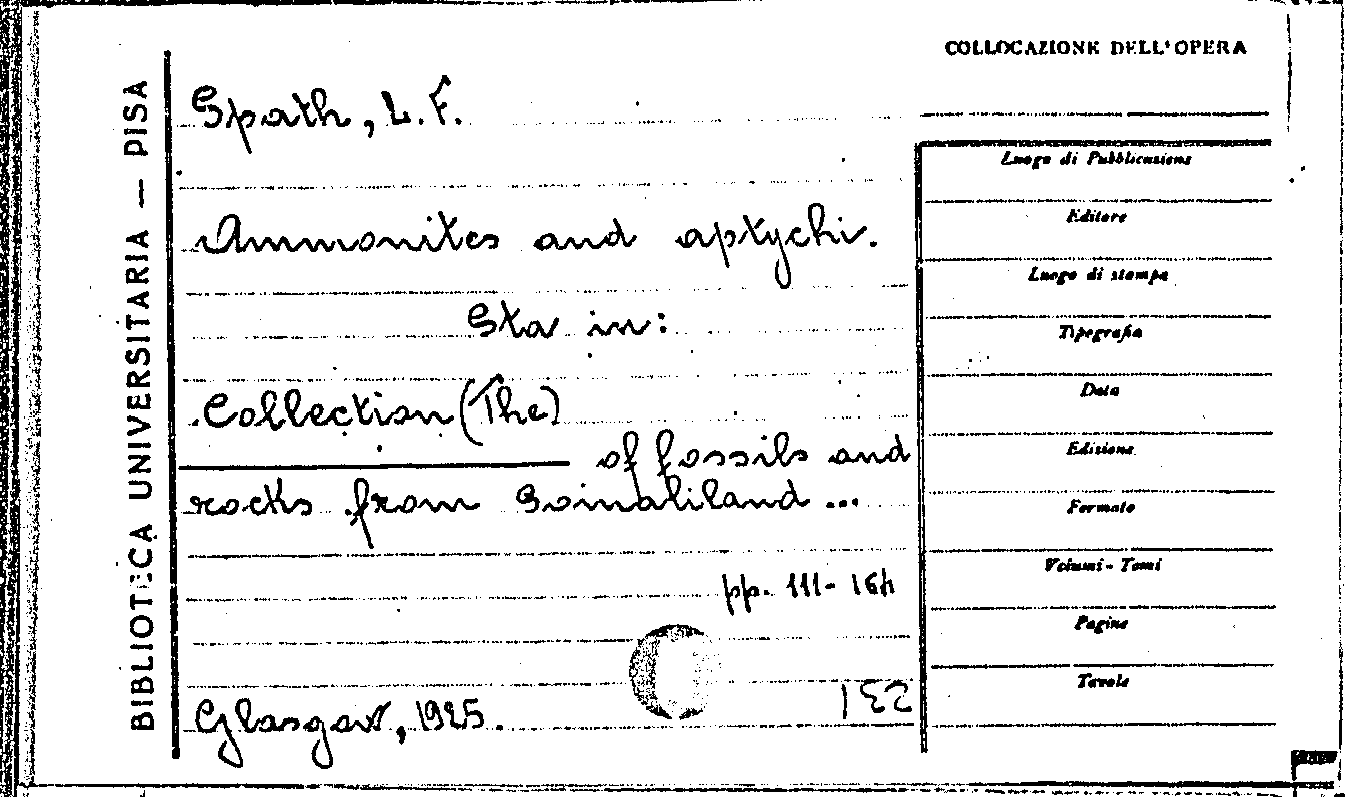 BIBLIOTECA UNIVERSITARIA — PISA
Spath, L. F.
Ammonites and aptychi.
Sta in:
Collection (The)
of fossils and
rocks from Somaliland ...
pp. 111-164
Glasgow, 1925.
COLLOCAZIONE DELL'OPERA
Luogo di Pubblicazione
Editore
Luogo di stampa
Tipografia
Data
Edizione
Formato
Volumi - Tomi
Pagine
Tavole